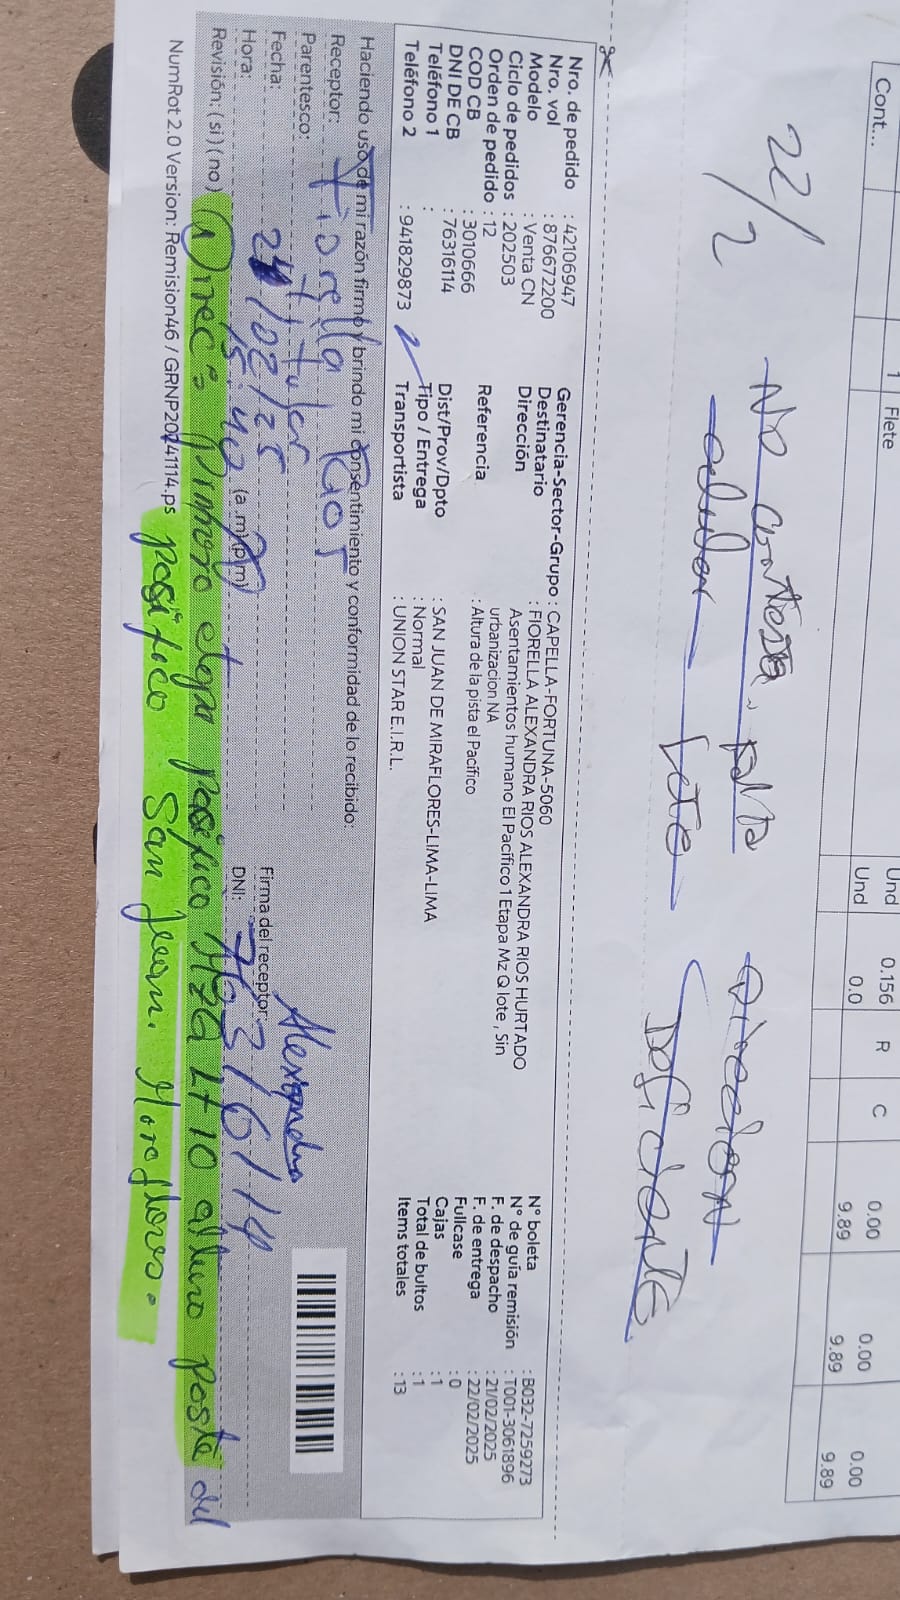 Cont...
1 Flete
Und 0.156 R C 0.00 0.00 0.00
Und 0.0 9.89 9.89 9.89
22/2 No contesta. falta Direccion
Lote Deficiente
Nro. de pedido : 42106947
Nro. vol : 876672200
Modelo : Venta CN
Ciclo de pedidos : 202503
Orden de pedido : 12
COD CB : 3010666
DNI DE CB : 76316114
Teléfono 1 :
Teléfono 2 : 941829873
Gerencia-Sector-Grupo : CAPELLA-FORTUNA-5060
Destinatario : FIORELLA ALEXANDRA RIOS ALEXANDRA RIOS HURTADO
Dirección Asentamientos humano El Pacífico 1 Etapa Mz Q lote , Sin
urbanizacion NA
Referencia : Altura de la pista el Pacífico
Dist/Prov/Dpto : SAN JUAN DE MIRAFLORES-LIMA-LIMA
Tipo / Entrega : Normal
Transportista : UNION STAR E.I.R.L.
N° boleta : B032-7259273
N° de guía remisión : T001-3061896
F. de despacho : 21/02/2025
F. de entrega : 22/02/2025
Fullcase : 0
Cajas : 1
Total de bultos : 1
Items totales : 13
Haciendo uso de mi razón firmo y brindo mi consentimiento y conformidad de lo recibido:
Receptor: Fiorella Rios
Parentesco: titular
Fecha: 24/02/25 Firma del receptor: Alexandra
Hora: 15:40 (a.m) (p.m) DNI: 76316114
Revisión: (si) (no) Direc: primera etapa pasifico Mza Lt 10 altura poste del
NumRot 2.0 Version: Remision46 / GRNP20241114.ps pasifico San Juan. Miraflores.